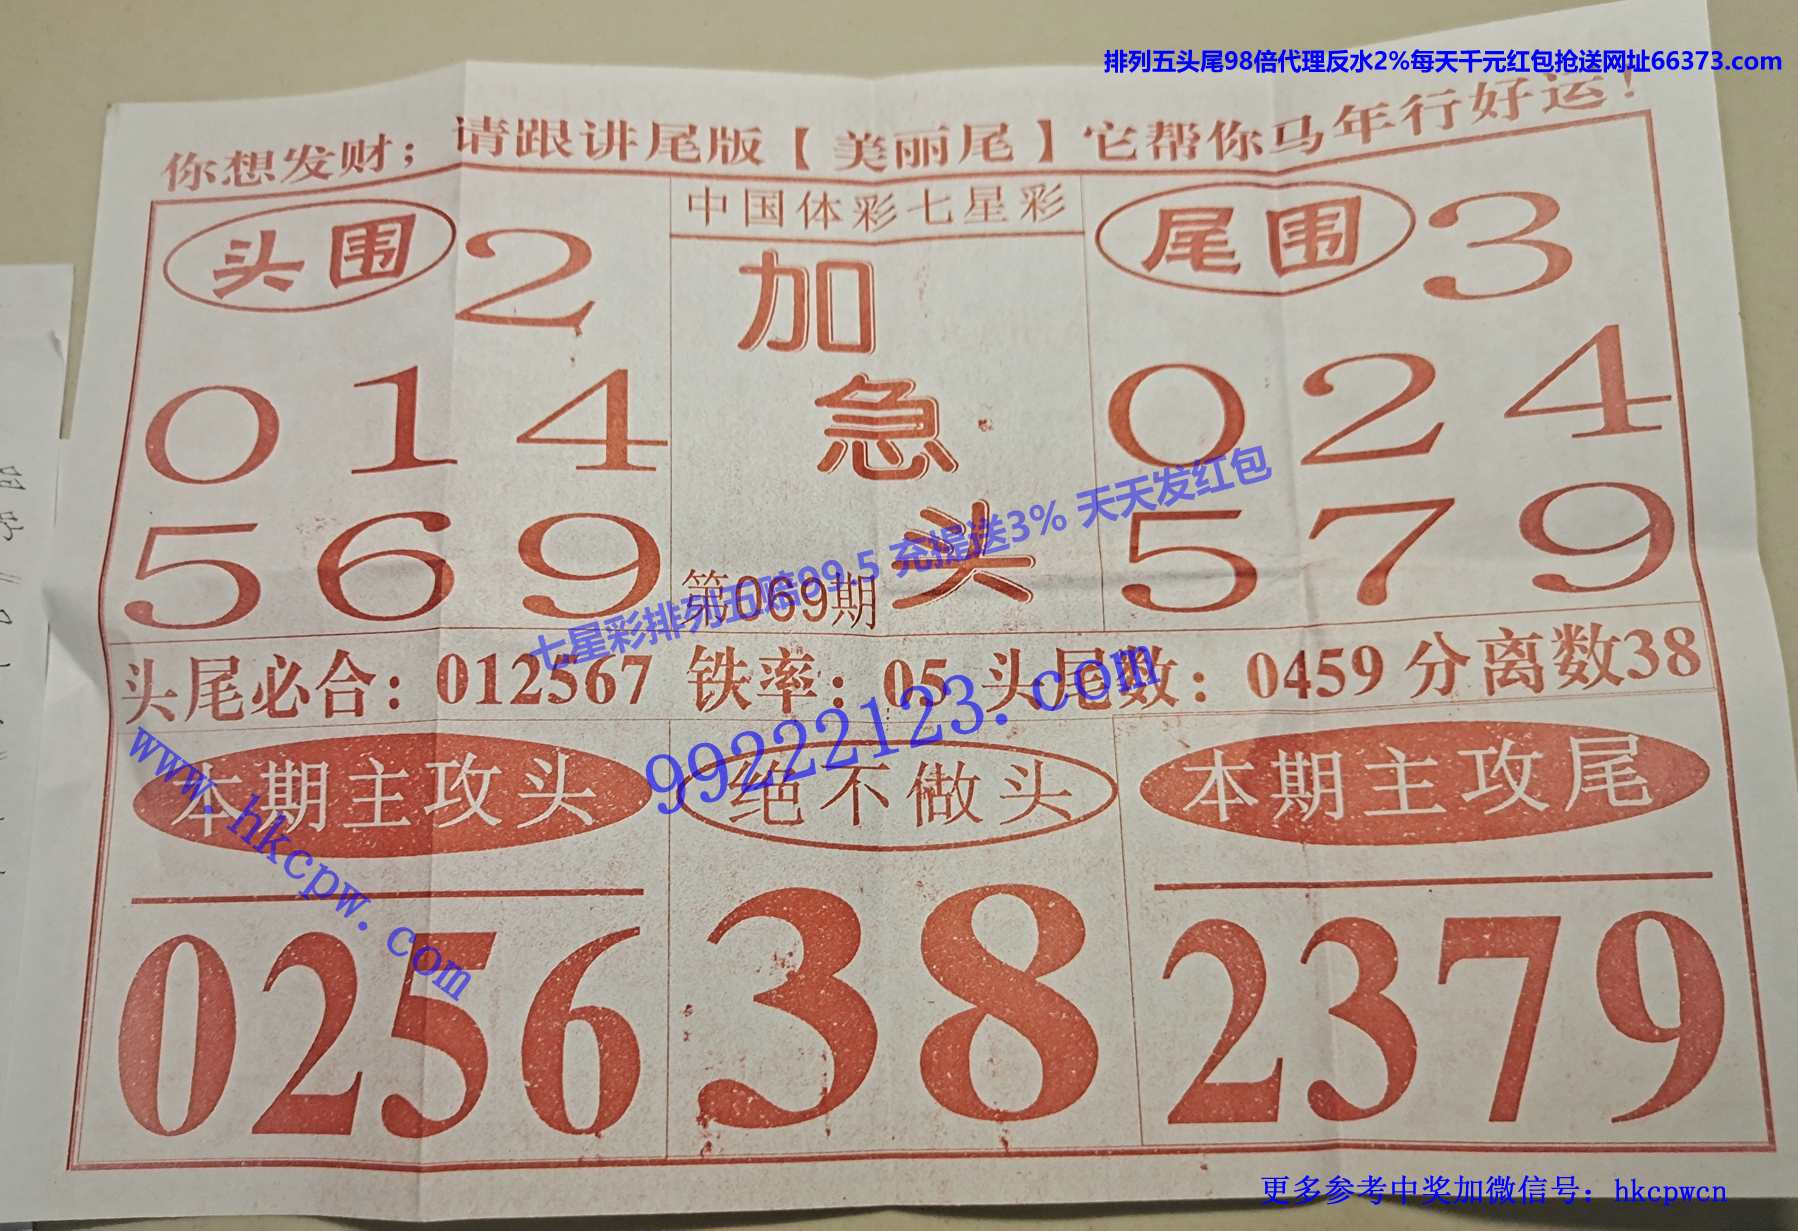 排列五头尾98倍代理反水2%每天千元红包抢送网址66373.com
你想发财；请跟讲尾版【美丽尾】它帮你马年行好运！
头围 2
0 1 4
5 6 9
中国体彩七星彩
加
急
头
第069期
尾围 3
0 2 4
5 7 9
七星彩排列五赔99.5 充提送3% 天天发红包
头尾必合：012567 铁率：05 头尾数：0459 分离数38
99222123.com
www.hkcpw.com
本期主攻头
0256
绝不做头
38
本期主攻尾
2379
更多参考中奖加微信号：hkcpwcn